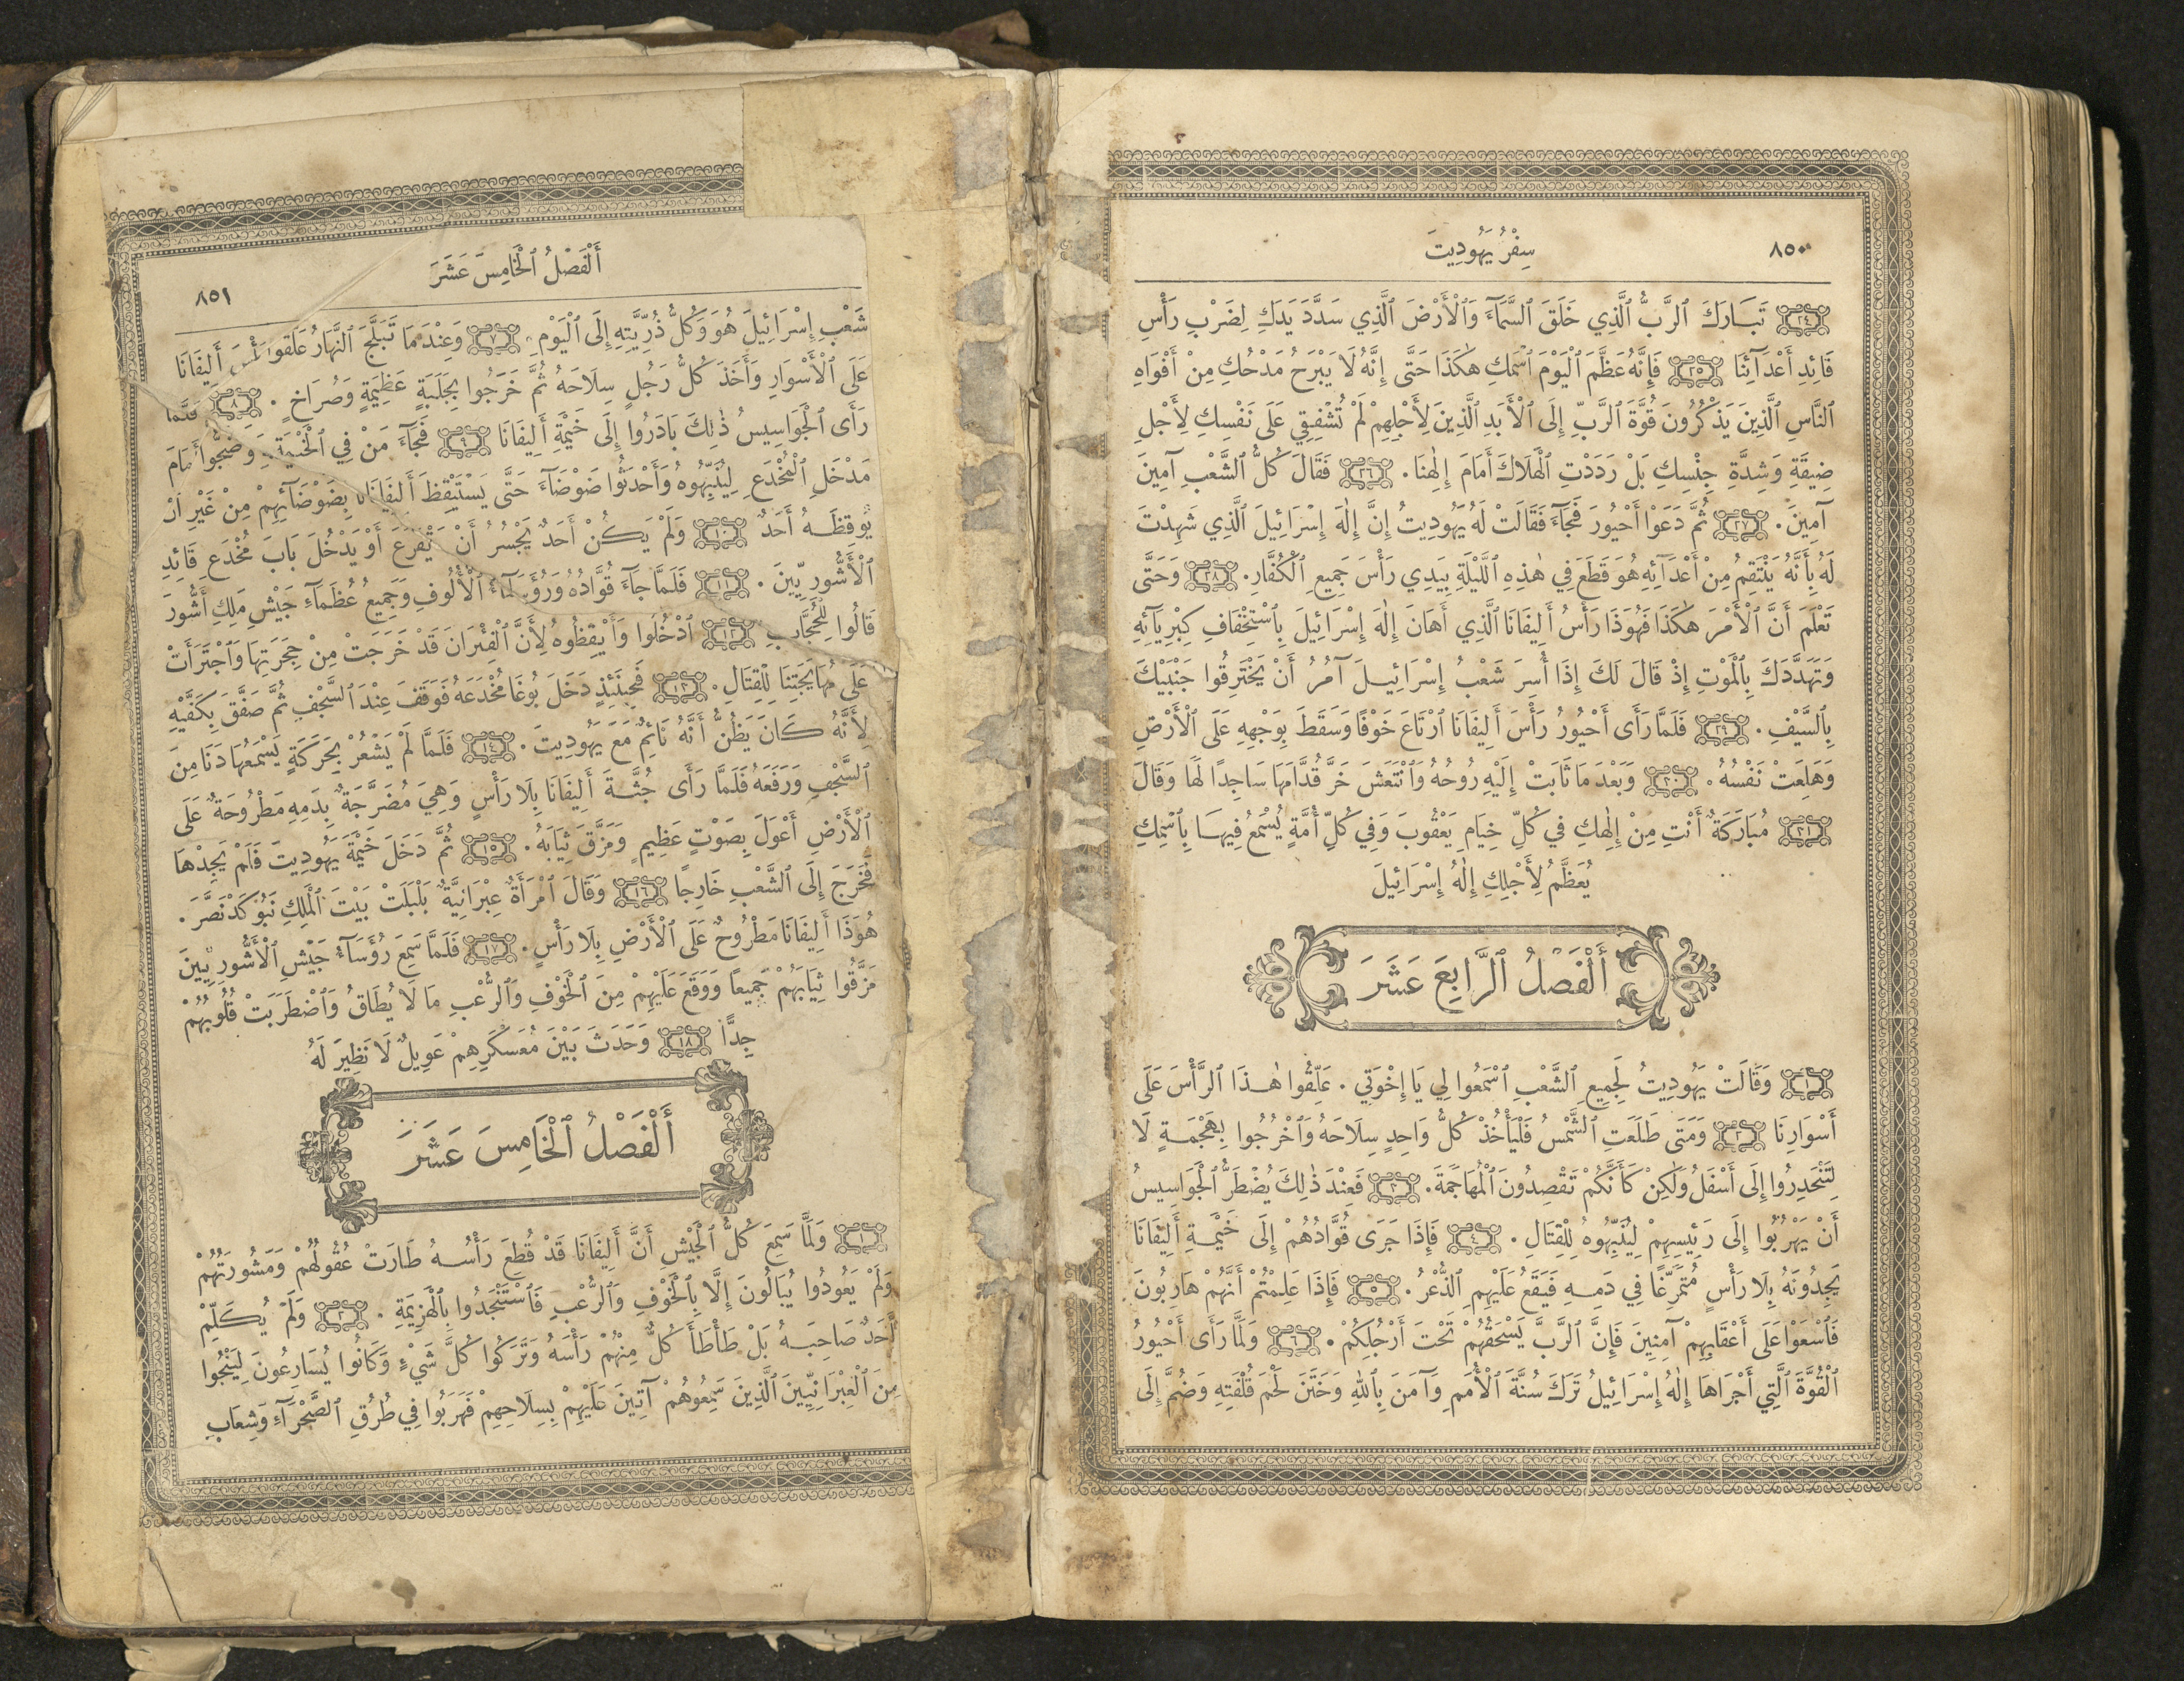 ٨٥٠
سِفْرُ يَهُودِيتَ
﴿٢٤﴾ تَبَارَكَ ٱلرَّبُّ ٱلَّذِي خَلَقَ ٱلسَّمَآءَ وَٱلْأَرْضَ ٱلَّذِي سَدَّدَ يَدَكِ لِضَرْبِ رَأْسِ
قَائِدِ أَعْدَآئِنَا ﴿٢٥﴾ فَإِنَّهُ عَظَّمَ ٱلْيَوْمَ ٱسْمَكِ هٰكَذَا حَتَّى إِنَّهُ لَا يَبْرَحُ مَدْحُكِ مِنْ أَفْوَاهِ
ٱلنَّاسِ ٱلَّذِينَ يَذْكُرُونَ قُوَّةَ ٱلرَّبِّ إِلَى ٱلْأَبَدِ ٱلَّذِينَ لِأَجْلِهِمْ لَمْ تُشْفِقِي عَلَى نَفْسِكِ لِأَجْلِ
ضِيقَةِ وَشِدَّةِ جِنْسِكِ بَلْ رَدَدْتِ ٱلْهَلَاكَ أَمَامَ إِلٰهِنَا. ﴿٢٦﴾ فَقَالَ كُلُّ ٱلشَّعْبِ آمِينَ
آمِينَ. ﴿٢٧﴾ ثُمَّ دَعَوْا أَحْيُورَ فَجَآءَ فَقَالَتْ لَهُ يَهُودِيتُ إِنَّ إِلٰهَ إِسْرَائِيلَ ٱلَّذِي شَهِدْتَ
لَهُ بِأَنَّهُ يَنْتَقِمُ مِنْ أَعْدَآئِهِ هُوَ قَطَعَ فِي هٰذِهِ ٱللَّيْلَةِ بِيَدِي رَأْسَ جَمِيعِ ٱلْكُفَّارِ. ﴿٢٨﴾ وَحَتَّى
تَعْلَمَ أَنَّ ٱلْأَمْرَ هٰكَذَا فَهُوَذَا رَأْسُ أَلِيفَانَا ٱلَّذِي أَهَانَ إِلٰهَ إِسْرَائِيلَ بِٱسْتِخْفَافِ كِبْرِيَآئِهِ
وَتَهَدَّدَكَ بِٱلْمَوْتِ إِذْ قَالَ لَكَ إِذَا أُسِرَ شَعْبُ إِسْرَائِيلَ آمُرُ أَنْ يَخْتَرِقُوا جَنْبَيْكَ
بِٱلسَّيْفِ. ﴿٢٩﴾ فَلَمَّا رَأَى أَحْيُورُ رَأْسَ أَلِيفَانَا ٱرْتَاعَ خَوْفًا وَسَقَطَ بِوَجْهِهِ عَلَى ٱلْأَرْضِ
وَهَلِعَتْ نَفْسُهُ. ﴿٣٠﴾ وَبَعْدَ مَا ثَابَتْ إِلَيْهِ رُوحُهُ وَٱنْتَعَشَ خَرَّ قُدَّامَهَا سَاجِدًا لَهَا وَقَالَ
﴿٣١﴾ مُبَارَكَةٌ أَنْتِ مِنْ إِلٰهِكِ فِي كُلِّ خِيَامِ يَعْقُوبَ وَفِي كُلِّ أُمَّةٍ يُسْمَعُ فِيهَا بِٱسْمِكِ
يُعَظَّمُ لِأَجْلِكِ إِلٰهُ إِسْرَائِيلَ
أَلْفَصْلُ ٱلرَّابِعَ عَشَرَ
﴿١﴾ وَقَالَتْ يَهُودِيتُ لِجَمِيعِ ٱلشَّعْبِ ٱسْمَعُوا لِي يَا إِخْوَتِي. عَلِّقُوا هٰذَا ٱلرَّأْسَ عَلَى
أَسْوَارِنَا ﴿٢﴾ وَمَتَى طَلَعَتِ ٱلشَّمْسُ فَلْيَأْخُذْ كُلُّ وَاحِدٍ سِلَاحَهُ وَٱخْرُجُوا بِهَجْمَةٍ لَا
لِتَنْحَدِرُوا إِلَى أَسْفَلُ وَلٰكِنْ كَأَنَّكُمْ تَقْصِدُونَ ٱلْمُهَاجَمَةَ. ﴿٣﴾ فَعِنْدَ ذٰلِكَ يُضْطَرُّ ٱلْجَوَاسِيسُ
أَنْ يَهْرُبُوا إِلَى رَئِيسِهِمْ لِيُنَبِّهُوهُ لِلْقِتَالِ. ﴿٤﴾ فَإِذَا جَرَى قُوَّادُهُمْ إِلَى خَيْمَةِ أَلِيفَانَا
يَجِدُونَهُ بِلَا رَأْسٍ مُتَمَرِّغًا فِي دَمِهِ فَيَقَعُ عَلَيْهِمِ ٱلذُّعْرُ. ﴿٥﴾ فَإِذَا عَلِمْتُمْ أَنَّهُمْ هَارِبُونَ
فَٱسْعَوْا عَلَى أَعْقَابِهِمْ آمِنِينَ فَإِنَّ ٱلرَّبَّ يَسْحَقُهُمْ تَحْتَ أَرْجُلِكُمْ. ﴿٦﴾ وَلَمَّا رَأَى أَحْيُورُ
ٱلْقُوَّةَ ٱلَّتِي أَجْرَاهَا إِلٰهُ إِسْرَائِيلُ تَرَكَ سُنَّةَ ٱلْأُمَمِ وَآمَنَ بِٱللهِ وَخَتَنَ لَحْمَ قُلْفَتِهِ وَضُمَّ إِلَى
أَلْفَصْلُ ٱلْخَامِسَ عَشَرَ
٨٥١
شَعْبِ إِسْرَائِيلَ هُوَ وَكُلُّ ذُرِّيَّتِهِ إِلَى ٱلْيَوْمِ. ﴿٧﴾ وَعِنْدَمَا تَبَلَّجَ ٱلنَّهَارُ عَلَّقُوا رَأْسَ أَلِيفَانَا
عَلَى ٱلْأَسْوَارِ وَأَخَذَ كُلُّ رَجُلٍ سِلَاحَهُ ثُمَّ خَرَجُوا بِجَلَبَةٍ عَظِيمَةٍ وَصُرَاخٍ. ﴿٨﴾ فَلَمَّا
رَأَى ٱلْجَوَاسِيسُ ذٰلِكَ بَادَرُوا إِلَى خَيْمَةِ أَلِيفَانَا ﴿٩﴾ فَجَآءَ مَنْ فِي ٱلْخَيْمَةِ وَضَجُّوا أَمَامَ
مَدْخَلِ ٱلْمُخْدَعِ لِيُنَبِّهُوهُ وَأَحْدَثُوا ضَوْضَآءَ حَتَّى يَسْتَيْقِظَ أَلِيفَانَا بِضَوْضَآئِهِمْ مِنْ غَيْرِ أَنْ
يُوقِظَهُ أَحَدٌ ﴿١٠﴾ وَلَمْ يَكُنْ أَحَدٌ يَجْسُرُ أَنْ يَقْرَعَ أَوْ يَدْخُلَ بَابَ مُخْدَعِ قَائِدِ
ٱلْأَشُّورِيِّينَ. ﴿١١﴾ فَلَمَّا جَآءَ قُوَّادُهُ وَرُؤَسَآءُ ٱلْأُلُوفِ وَجَمِيعُ عُظَمَآءِ جَيْشِ مَلِكِ أَشُّورَ
قَالُوا لِلْحُجَّابِ ﴿١٢﴾ ٱدْخُلُوا وَأَيْقِظُوهُ لِأَنَّ ٱلْفِئْرَانَ قَدْ خَرَجَتْ مِنْ حِجَرَتِهَا وَٱجْتَرَأَتْ
عَلَى مُهَايَجَتِنَا لِلْقِتَالِ. ﴿١٣﴾ فَحِينَئِذٍ دَخَلَ بُوغَا مُخْدَعَهُ فَوَقَفَ عِنْدَ ٱلسَّجْفِ ثُمَّ صَفَّقَ بِكَفَّيْهِ
لِأَنَّهُ كَانَ يَظُنُّ أَنَّهُ نَائِمٌ مَعَ يَهُودِيتَ. ﴿١٤﴾ فَلَمَّا لَمْ يَشْعُرْ بِحَرَكَةٍ يَسْمَعُهَا دَنَا مِنَ
ٱلسَّجْفِ وَرَفَعَهُ فَلَمَّا رَأَى جُثَّةَ أَلِيفَانَا بِلَا رَأْسٍ وَهِيَ مُضَرَّجَةٌ بِدَمِهِ مَطْرُوحَةٌ عَلَى
ٱلْأَرْضِ أَعْوَلَ بِصَوْتٍ عَظِيمٍ وَمَزَّقَ ثِيَابَهُ. ﴿١٥﴾ ثُمَّ دَخَلَ خَيْمَةَ يَهُودِيتَ فَلَمْ يَجِدْهَا
فَخَرَجَ إِلَى ٱلشَّعْبِ خَارِجًا ﴿١٦﴾ وَقَالَ ٱمْرَأَةٌ عِبْرَانِيَّةٌ بَلْبَلَتْ بَيْتَ ٱلْمَلِكِ نَبُوكَدْنَصَّرَ.
هُوَذَا أَلِيفَانَا مَطْرُوحٌ عَلَى ٱلْأَرْضِ بِلَا رَأْسٍ. ﴿١٧﴾ فَلَمَّا سَمِعَ رُؤَسَآءُ جَيْشِ ٱلْأَشُّورِيِّينَ
مَزَّقُوا ثِيَابَهُمْ جَمِيعًا وَوَقَعَ عَلَيْهِمْ مِنَ ٱلْخَوْفِ وَٱلرُّعْبِ مَا لَا يُطَاقُ وَٱضْطَرَبَتْ قُلُوبُهُمْ
جِدًّا ﴿١٨﴾ وَحَدَثَ بَيْنَ مُعَسْكَرِهِمْ عَوِيلٌ لَا نَظِيرَ لَهُ
أَلْفَصْلُ ٱلْخَامِسَ عَشَرَ
﴿١﴾ وَلَمَّا سَمِعَ كُلُّ ٱلْجَيْشِ أَنَّ أَلِيفَانَا قَدْ قُطِعَ رَأْسُهُ طَارَتْ عُقُولُهُمْ وَمَشُورَتُهُمْ
وَلَمْ يَعُودُوا يُبَالُونَ إِلَّا بِٱلْخَوْفِ وَٱلرُّعْبِ فَٱسْتَنْجَدُوا بِٱلْهَزِيمَةِ. ﴿٢﴾ وَلَمْ يُكَلِّمْ
أَحَدٌ صَاحِبَهُ بَلْ طَأْطَأَ كُلٌّ مِنْهُمْ رَأْسَهُ وَتَرَكُوا كُلَّ شَيْءٍ وَكَانُوا يُسَارِعُونَ لِيَنْجُوا
مِنَ ٱلْعِبْرَانِيِّينَ ٱلَّذِينَ سَمِعُوهُمْ آتِينَ عَلَيْهِمْ بِسِلَاحِهِمْ فَهَرَبُوا فِي طُرُقِ ٱلصَّحْرَآءِ وَشِعَابِ